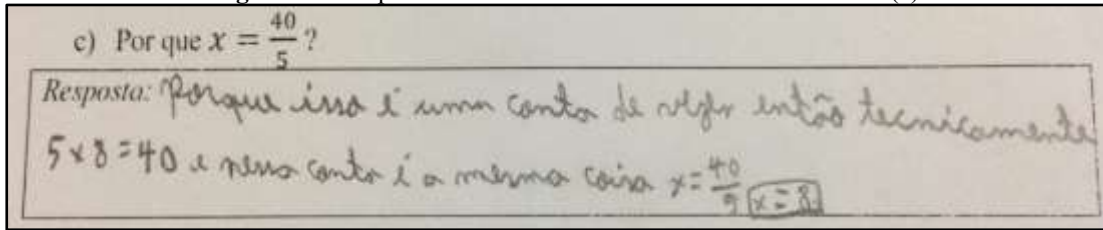 c) Por que x = 40/5 ?
Resposta: Porque isso é uma conta de vezes então tecnicamente
5 x 8 = 40 e nessa conta é a mesma coisa x = 40/5 x = 8